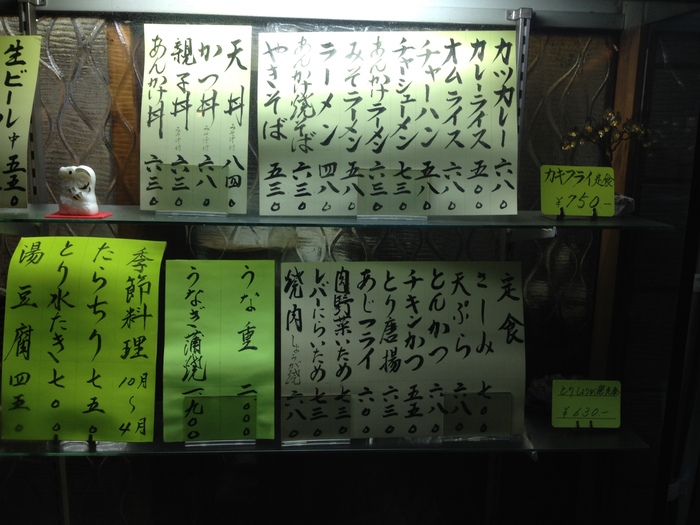 カツカレー 六八〇
カレーライス 五〇〇
オムライス 六八〇
チャーハン 五八〇
チャーシューメン 七三〇
あんかけラーメン 六三〇
みそラーメン 五八〇
ラーメン 四八〇
あんかけ焼そば 六三〇
やきそば 五三〇
天丼 みそ汁付 八四〇
かつ丼 みそ汁付 六八〇
親子丼 みそ汁付 六三〇
あんかけ丼 六三〇
生ビール 中 五五〇
カキフライ定食
¥750-
定食
さしみ 七〇〇
天ぷら 八八〇
とんかつ 六八〇
チキンかつ 五五〇
とり唐揚 五五〇
あじフライ 六〇〇
肉野菜いため 七三〇
レバーにらいため 七三〇
焼肉 しょうが焼 六八〇
うな重 二〇〇〇
うなぎ蒲焼 一九〇〇
季節料理 10月〜4月
たらちり 七五〇
とり水たき 七〇〇
湯豆腐 四五〇
¥630-